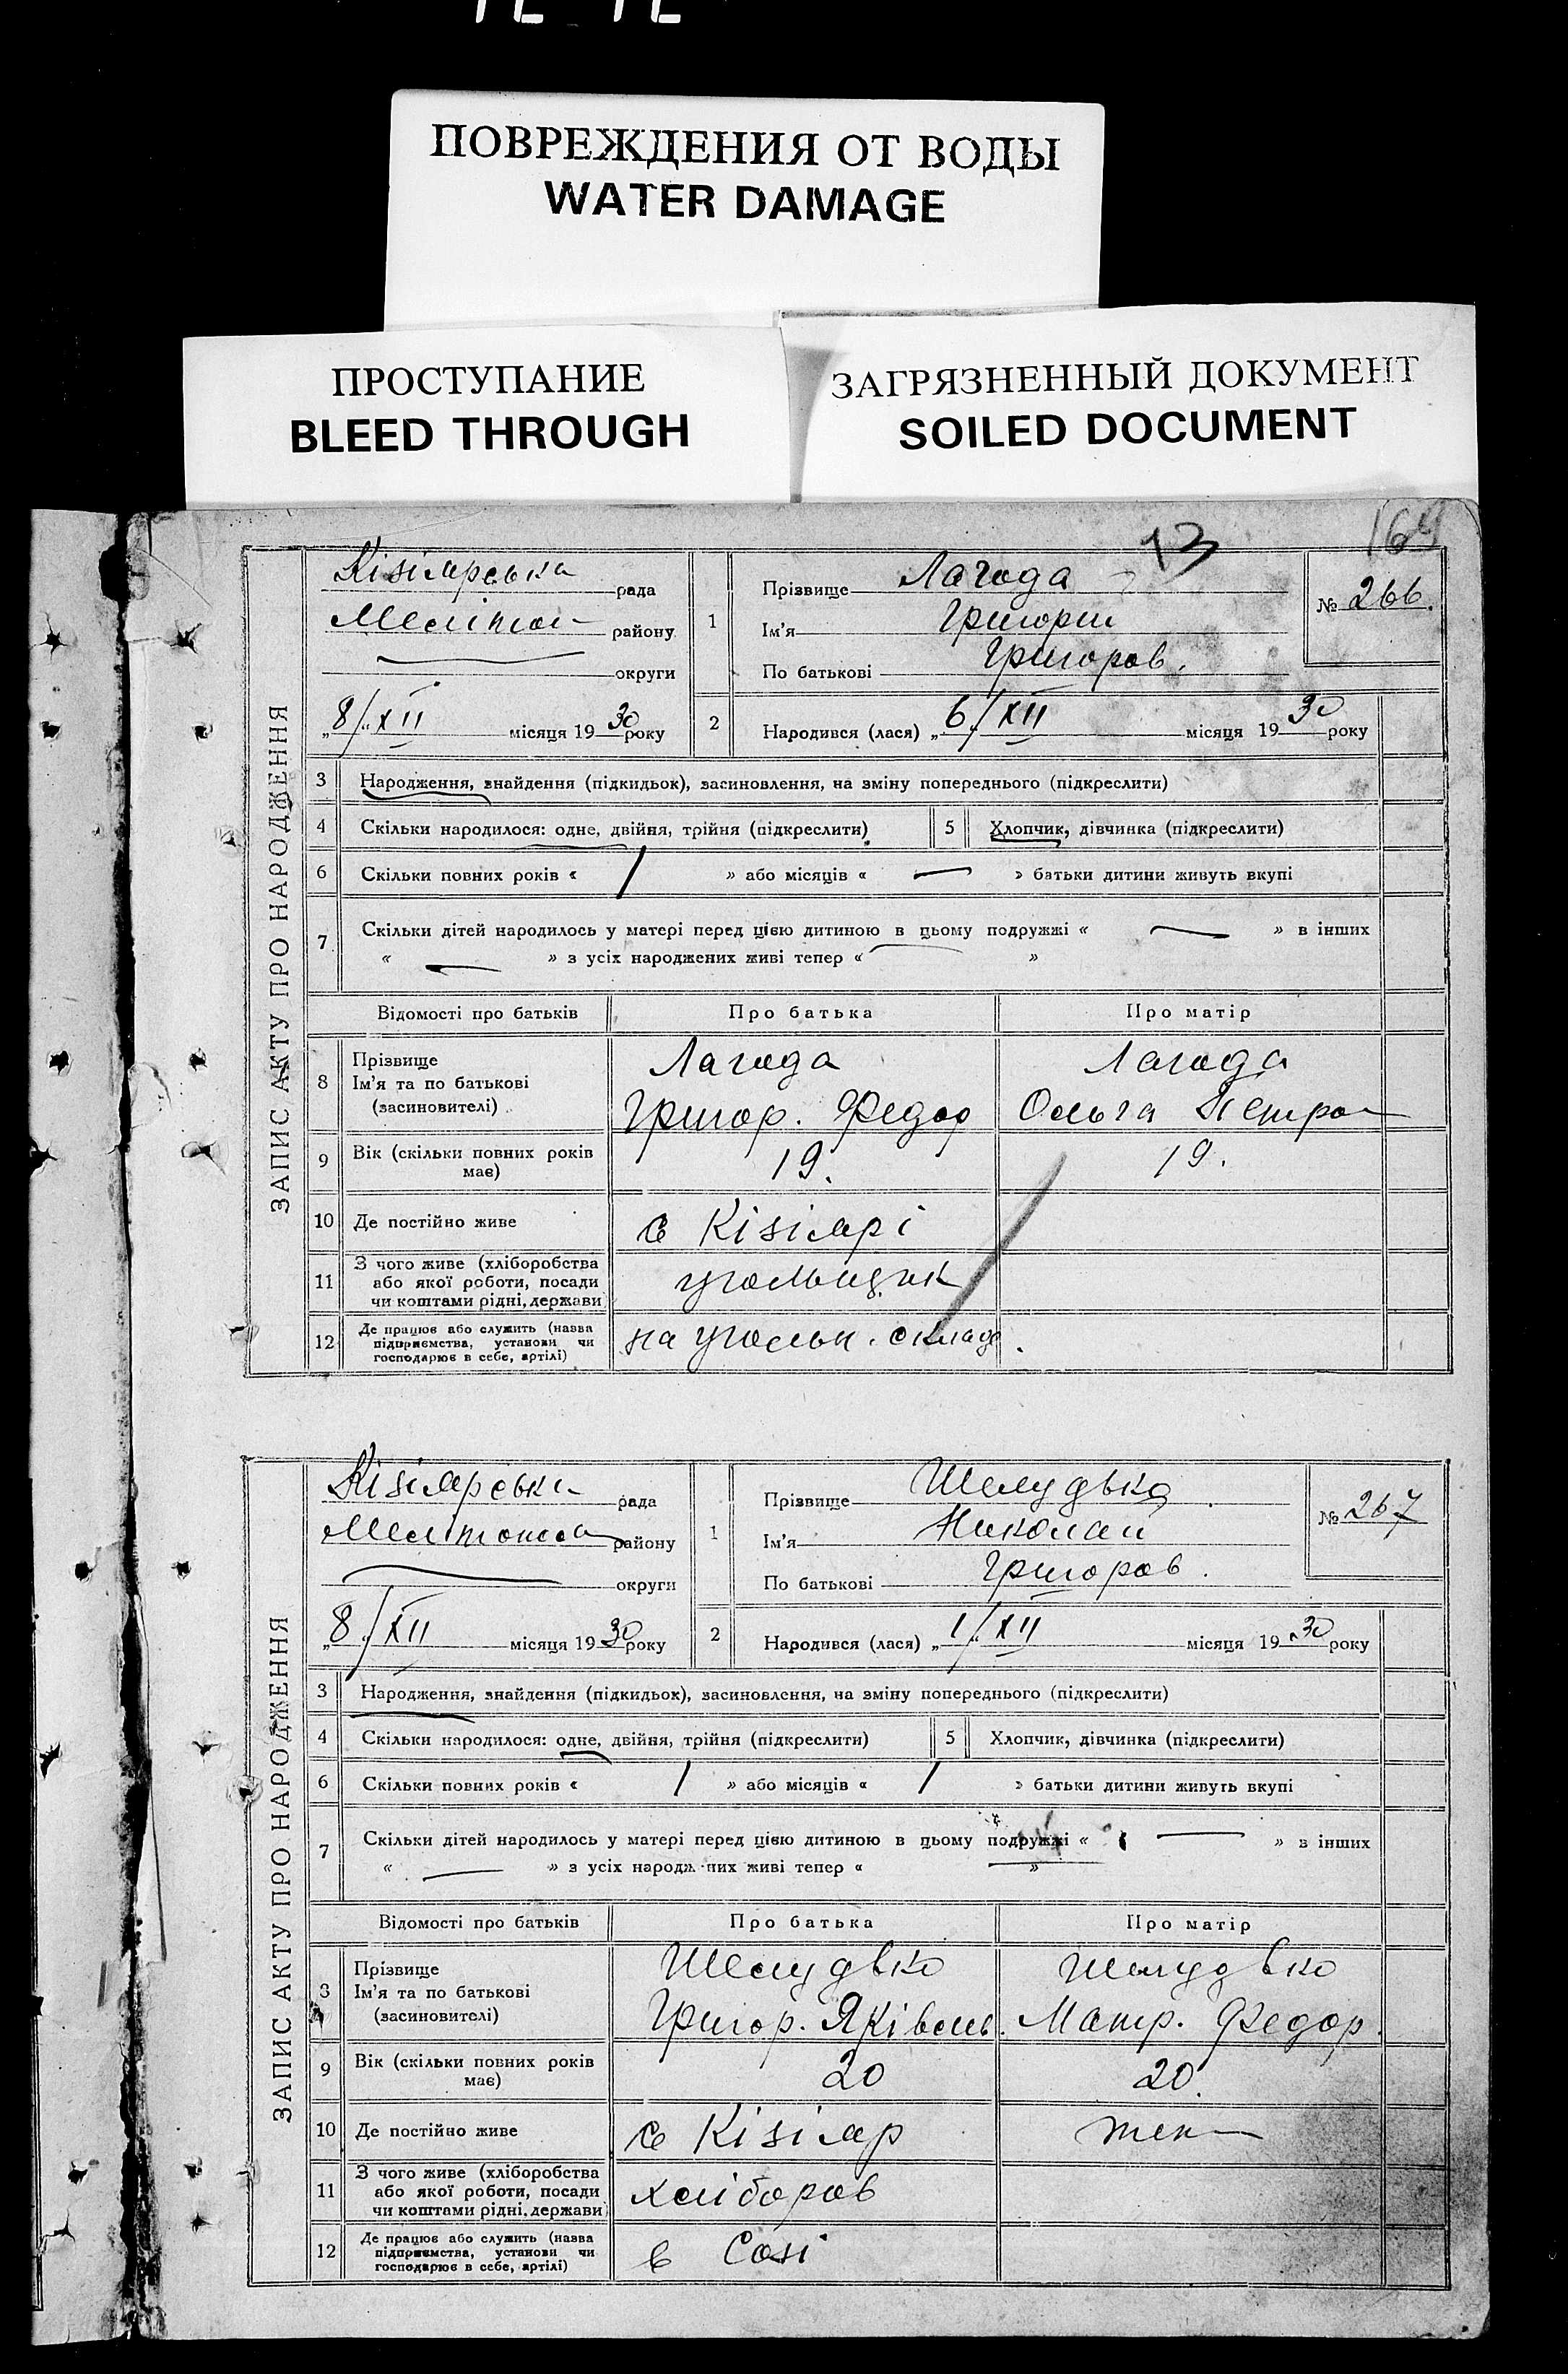 ПОВРЕЖДЕНИЯ ОТ ВОДЫ
WATER DAMAGE
ПРОСТУПАНИЕ
BLEED THROUGH
ЗАГРЯЗНЕННЫЙ ДОКУМЕНТ
SOILED DOCUMENT
13
ЗАПИС АКТУ ПРО НАРОДЖЕННЯ
Кізіярська рада
Меліт району
округи
„8/XII місяця 1930 року
1 Прізвище Лагода
Ім'я Григорий
По батькові Григоров.
№ 266.
2 Народився (лася) „6/XII місяця 1930 року
3 Народження, знайдення (підкидьок), засиновлення, на зміну попереднього (підкреслити)
4 Скільки народилося: одне, двійня, трійня (підкреслити) 5 Хлопчик, дівчинка (підкреслити)
6 Скільки повних років « / » або місяців « — » батьки дитини живуть вкупі
7 Скільки дітей народилось у матері перед цією дитиною в цьому подружжі « — » в інших
« — » з усіх народжених живі тепер « — »
Відомості про батьків Про батька Про матір
8 Прізвище Ім'я та по батькові (засиновителі)
Лагода Григор. Федор
Лагода Ольга Петро
9 Вік (скільки повних років має) 19. 19.
10 Де постійно живе с Кізіярі
11 З чого живе (хліборобства або якої роботи, посади чи коштами рідні, держави) угольщик
12 Де працює або служить (назва підприємства, установи чи господарює в себе, артілі) на угольн. складе.
ЗАПИС АКТУ ПРО НАРОДЖЕННЯ
Кізіярськ рада
району
округи
„8/XII місяця 1930 року
1 Прізвище Шелудько
Ім'я Николай
По батькові Григоров.
№ 267
2 Народився (лася) „1/XII місяця 1930 року
3 Народження, знайдення (підкидьох), засиновлення, на зміну попереднього (підкреслити)
4 Скільки народилося: одне, двійня, трійня (підкреслити) 5 Хлопчик, дівчинка (підкреслити)
6 Скільки повних років « / » або місяців « / » батьки дитини живуть вкупі
7 Скільки дітей народилось у матері перед цією дитиною в цьому подружжі « — » в інших
« — » з усіх народж них живі тепер « — »
Відомості про батьків Про батька Про матір
8 Прізвище Ім'я та по батькові (засиновителі)
Шелудько Григор. Яківль.
Шелудько Матр. Федор.
9 Вік (скільки повних років має) 20 20.
10 Де постійно живе с Кізіяр
11 З чого живе (хліборобства або якої роботи, посади чи коштами рідні, держави) хлібороб
12 Де працює або служить (назва підприємства, установи чи господарює в себе, артілі) в Созі